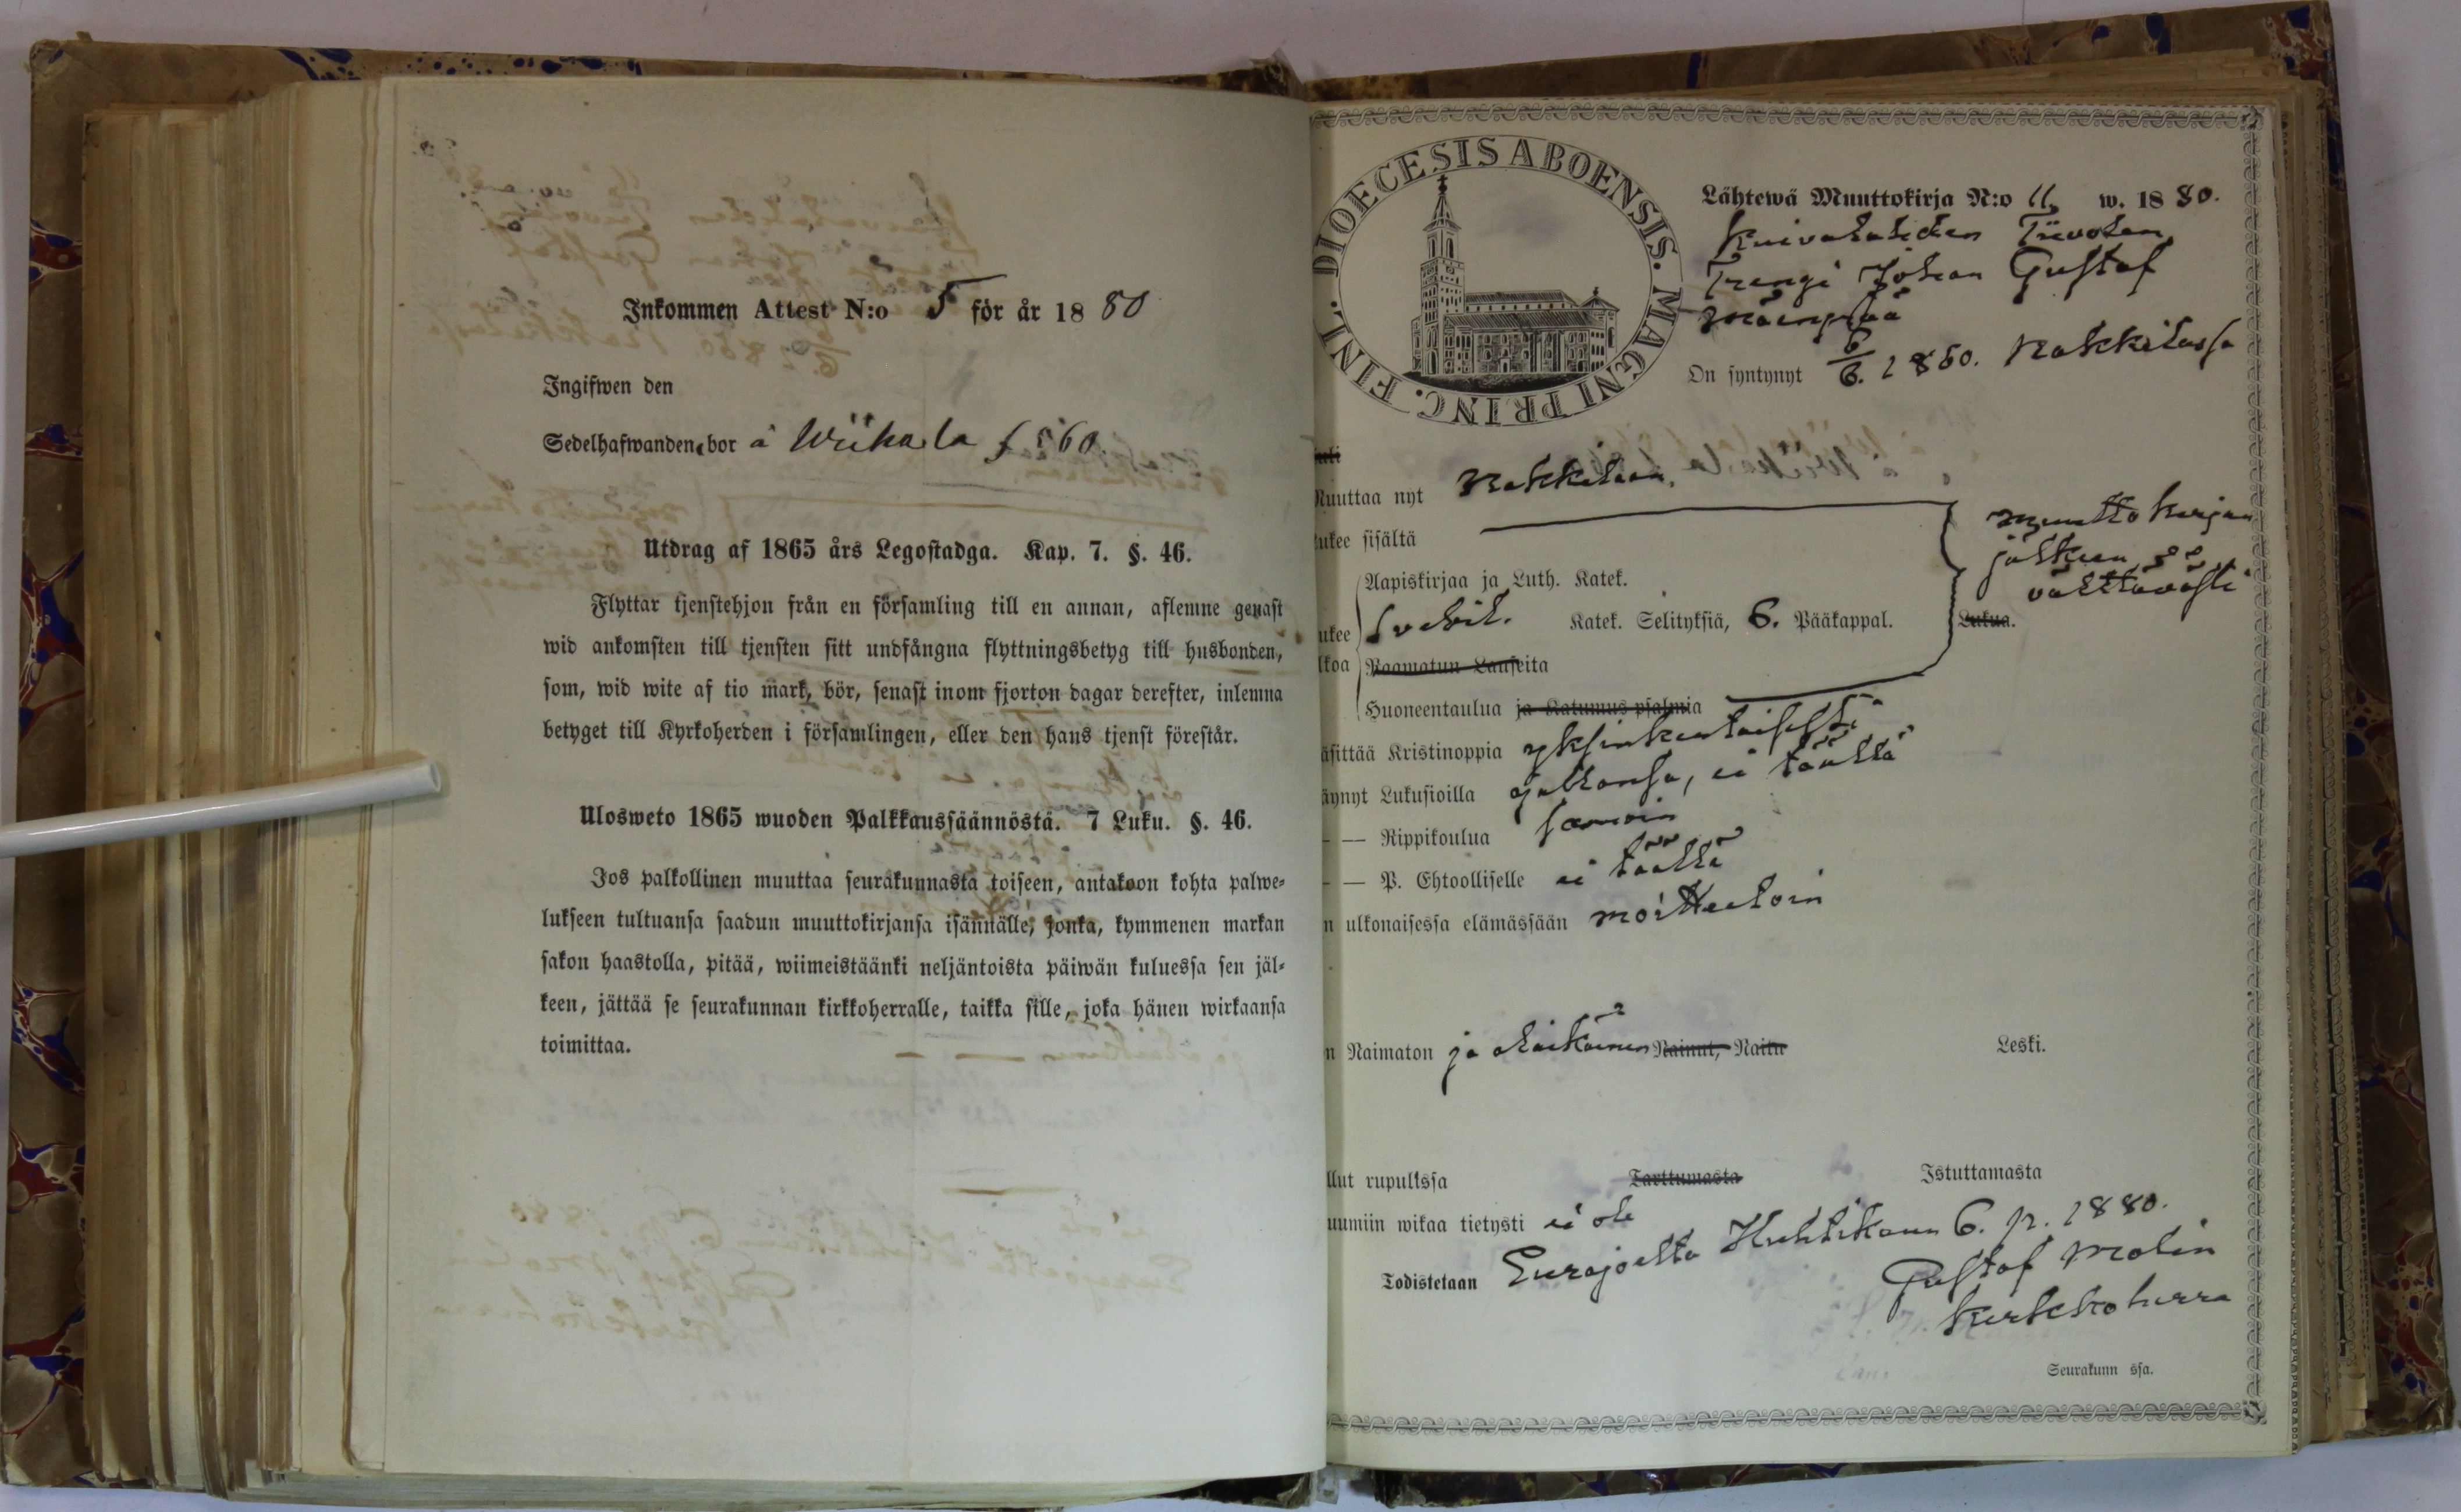 Inkommen Attest N:o 5 för år 1880
Ingifwen den
Sedelhafwanden bor å Wiikala f 560.
Utdrag af 1865 års Legostadga. Kap. 7. §. 46.
Flyttar tjenstehjon från en församling till en annan, aflemne genast
wid ankomsten till tjensten sitt undfångna flyttningsbetyg till husbonden,
som, wid wite af tio mark, bör, senast inom fjorton dagar derefter, inlemna
betyget till Kyrkoherden i församlingen, eller den hans tjenst förestår.
Ulosweto 1865 wuoden Palkkaussäännöstä. 7 Luku. §. 46.
Jos palkollinen muuttaa seurakunnasta toiseen, antakoon kohta palwe-
lukseen tultuansa saadun muuttokirjansa isännälle, jonka, kymmenen markan
sakon haastolla, pitää, wiimeistäänki neljäntoista päiwän kuluessa sen jäl-
keen, jättää se seurakunnan kirkkoherralle, taikka sille, joka hänen wirkaansa
toimittaa.
DIOECESIS ABOENSIS. MAGNI PRINC. FINL.
Lähtewä Muuttokirja N:o 11, w. 1880.
Kuivalahden
Trengi Johan Gustaf
Mäenpää
On syntynyt 6/6. 1860. Nakkilassa
Muuttaa nyt Nakkilaan.
lukee sisältä
muutto kirjan
jälkeen
välttävästi
Aapiskirjaa ja Luth. Katek.
ukee Svebil. Katek. Selityksiä, 6. Pääkappal. Lukua.
lkoa Raamatun Lauseita
Huoneentaulua ja Katumus psalmia
äsittää Kristinoppia yksinkertaisesti
äynyt Lukusioilla ei täällä
— Rippikoulua samoin
— P. Ehtoolliselle ei täällä
n ulkonaisessa elämässään moitteetoin
n Naimaton ja Nainut, Naitu Leski.
llut rupulissa Tarttumasta Istuttamasta
uumiin wikaa tietysti ei ole
Todistetaan Eurajoella Huhtikuun 6. p. 1880.
Gustaf Molin
Kirkkoherra
Seurakunn ssa.